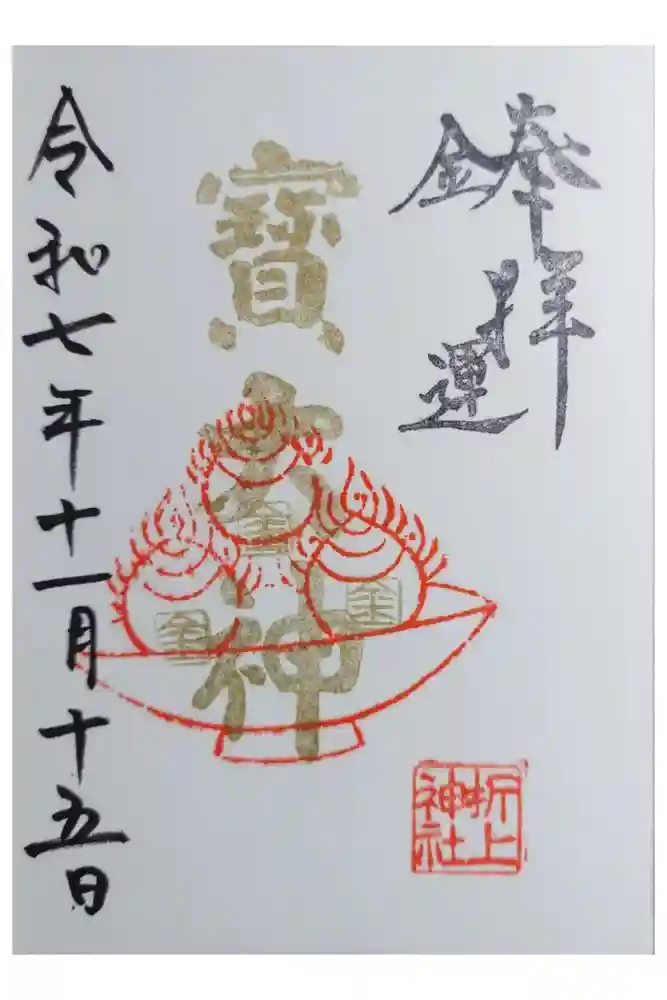 奉拝
金運
寶大神
金
金
金
折上
神社
令和七年十一月十五日